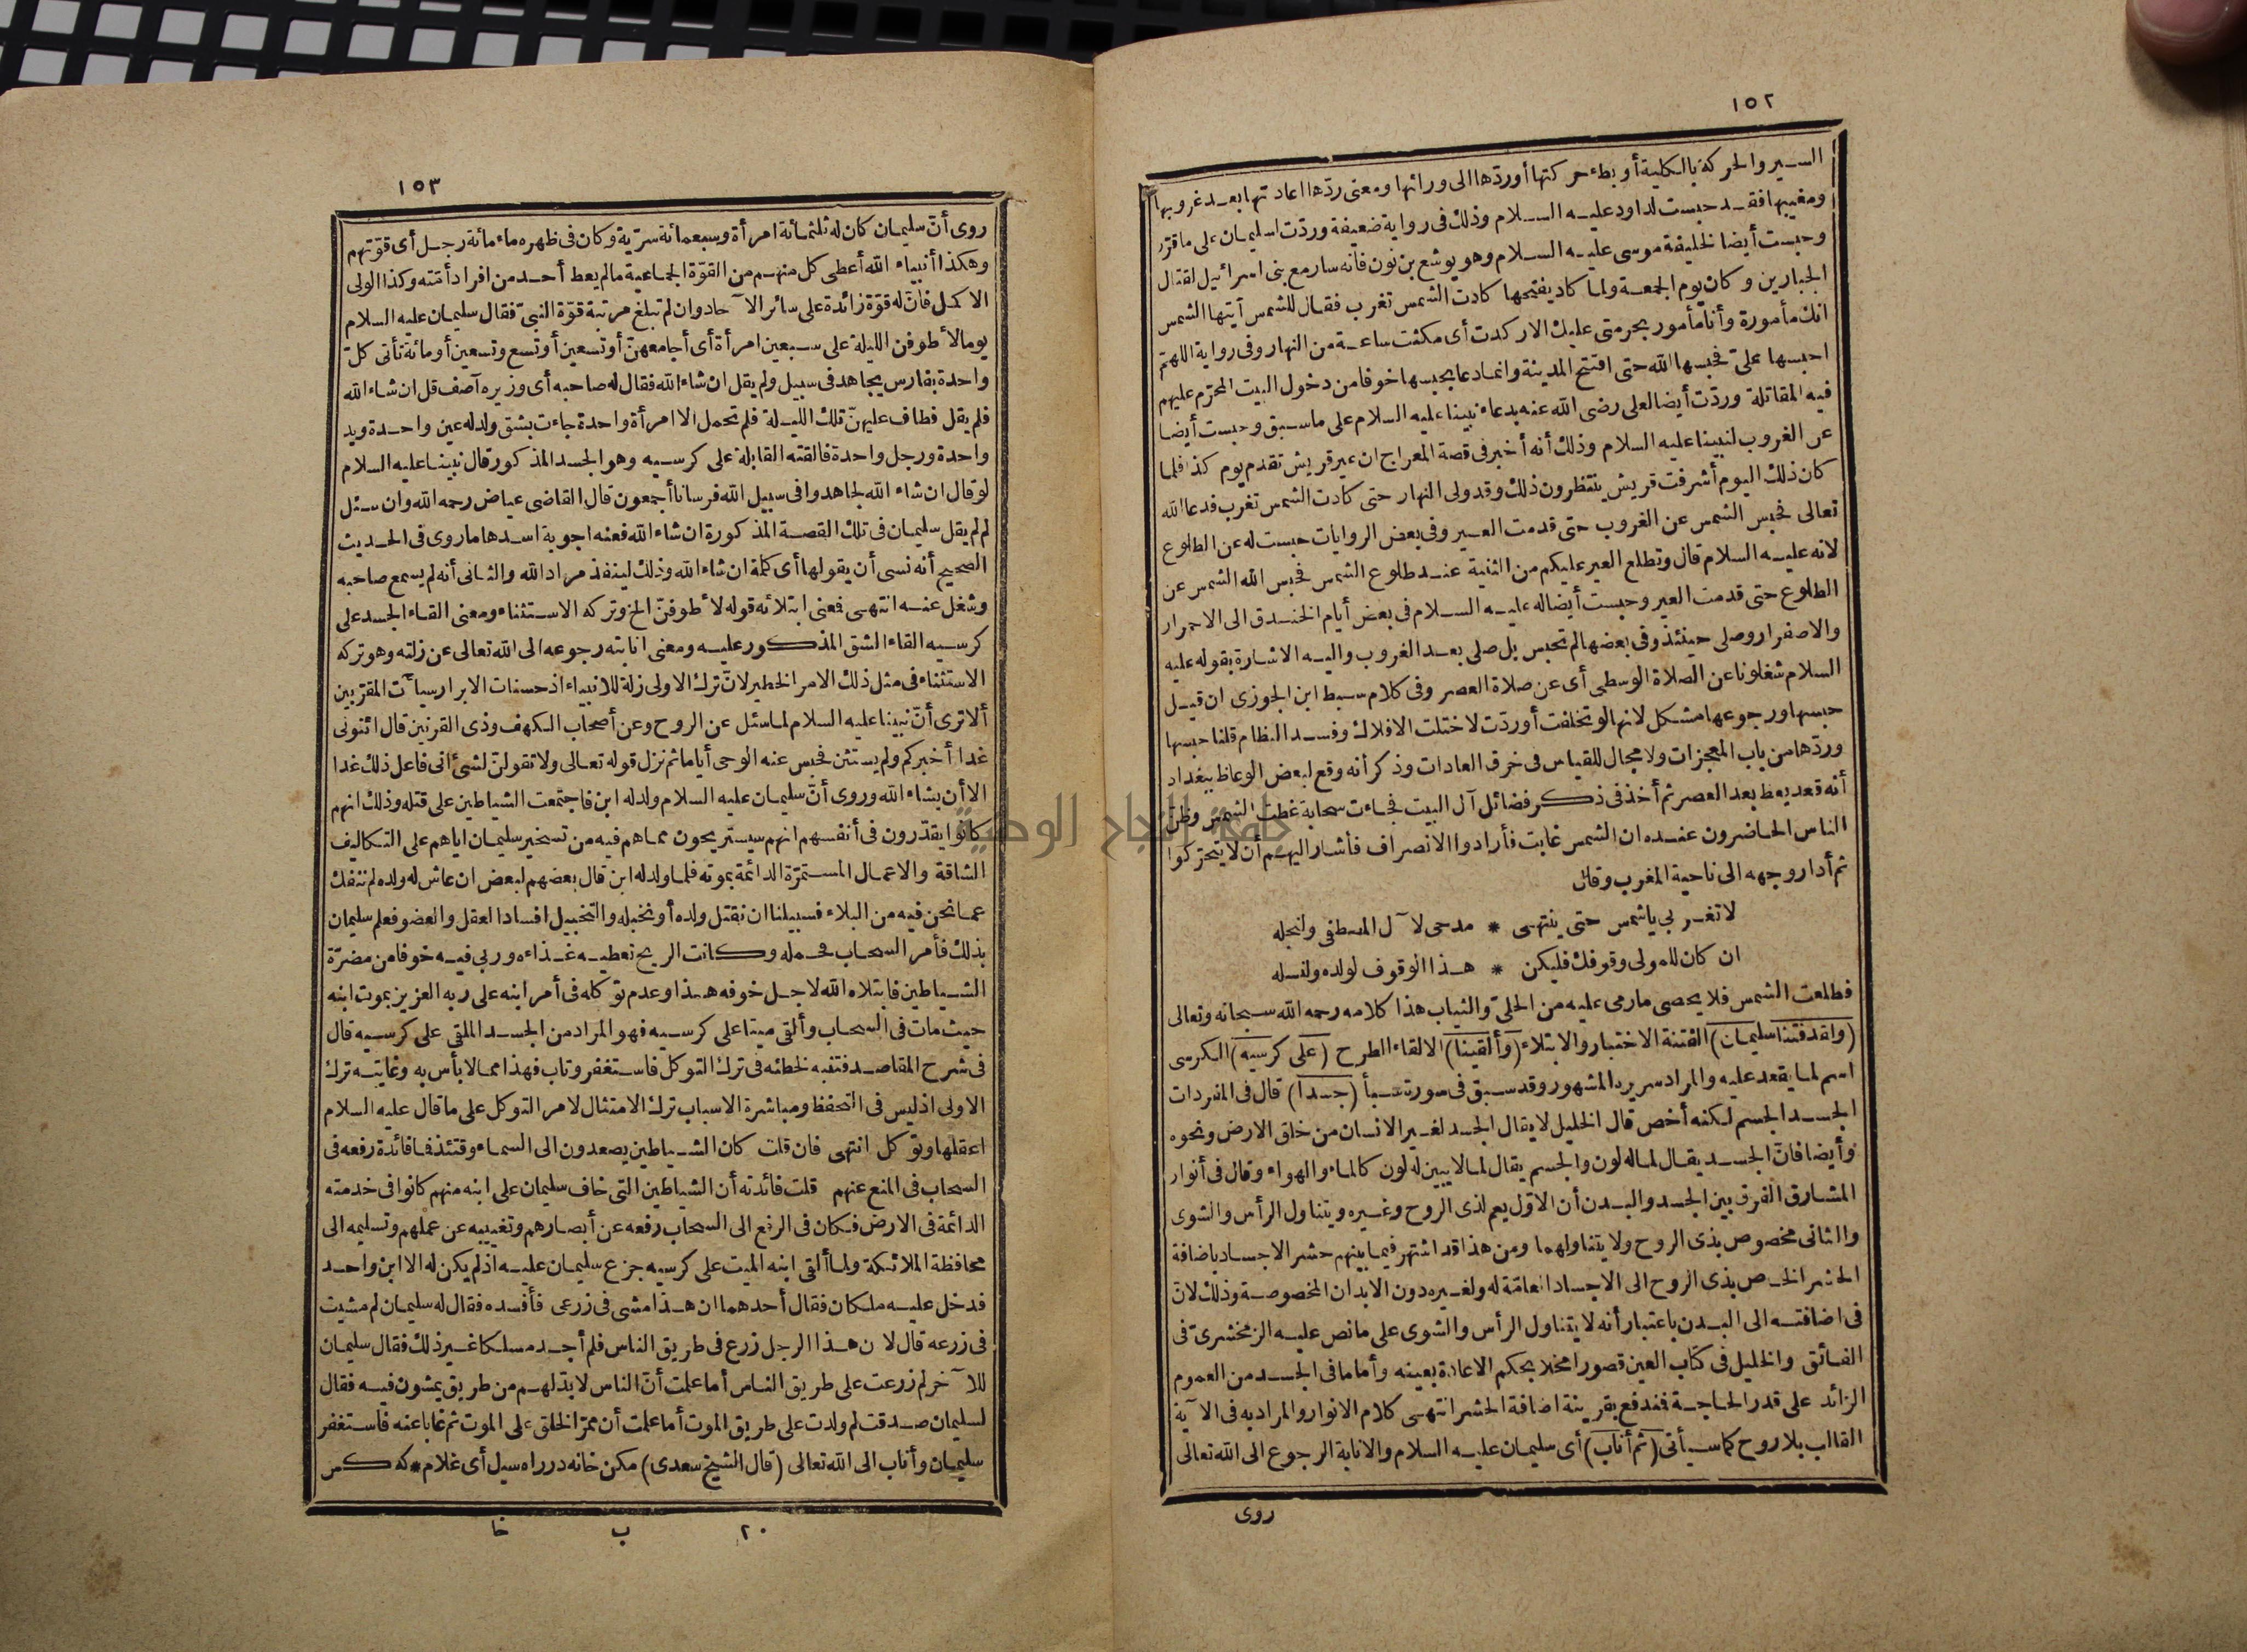 ١٥٢
السير والحركة بالكلية أو بطء حركتها أو ردّها الى ورائها ومعنى ردّها اعادتها بعد غروبها
ومغيبها فقد حبست لداود عليه السلام وذلك فى رواية ضعيفة وردّت لسليمان على ما قرّر
وحبست أيضا لخليفة موسى عليه السلام وهو يوشع بن نون فانه سار مع بنى اسرائيل لقتال
الجبارين وكان يوم الجمعة ولما كاد يفتحها كادت الشمس تغرب فقال للشمس أيتها الشمس
انك مأمورة وأنا مأمور بحرمتى عليك الا ركدت أى مكثت ساعة من النهار وفى رواية اللهمّ
احبسها علىّ فحبسها الله حتى افتتح المدينة وانما دعا بحبسها خوفا من دخول البيت المحرّم عليهم
فيه المقاتلة وردّت أيضا لعلى رضى الله عنه بدعاء نبينا عليه السلام على ما سبق وحبست أيضا
عن الغروب لنبينا عليه السلام وذلك أنه أخبر فى قصة المعراج ان عير قريش تقدم يوم كذا فلما
كان ذلك اليوم أشرفت قريش ينتظرون ذلك وقد ولى النهار حتى كادت الشمس تغرب فدعا الله
تعالى فحبس الشمس عن الغروب حتى قدمت العير وفى بعض الروايات حبست له عن الطلوع
لانه عليه السلام قال وتطلع العير عليكم من الثنية عند طلوع الشمس فحبس الله الشمس عن
الطلوع حتى قدمت العير وحبست أيضا له عليه السلام فى بعض أيام الخندق الى الاحمرار
والاصفرار وصلى حينئذ وفى بعضها لم تحبس بل صلى بعد الغروب واليه الاشارة بقوله عليه
السلام شغلونا عن الصلاة الوسطى أى عن صلاة العصر وفى كلام سبط ابن الجوزى ان قيل
حبسها ورجوعها مشكل لانها لو تخلفت أو ردّت لاختلت الافلاك وفسد النظام قلنا حبسها
وردّها من باب المعجزات ولا مجال للقياس فى خرق العادات وذكر أنه وقع لبعض الوعاظ ببغداد
أنه قعد يعظ بعد العصر ثم أخذ فى ذكر فضائل آل البيت فجاءت سحابة غطت الشمس وظن
الناس الحاضرون عنده ان الشمس غابت فأرادوا الانصراف فأشار اليهم أن لا يتحرّكوا
ثم أدار وجهه الى ناحية المغرب وقال
لا تغربى يا شمس حتى ينتهى * مدحى لآل المصطفى ولنجله
ان كان للمولى وقوفك فليكن * هذا الوقوف لولده ولنسله
فطلعت الشمس فلا يحصى ما رمى عليه من الحلىّ والثياب هذا كلامه رحمه الله سبحانه وتعالى
(ولقد فتنا سليمان) الفتنة الاختبار والابتلاء (وألقينا) الالقاء الطرح (على كرسيه) الكرسى
اسم لما يقعد عليه والمراد سريره المشهور وقد سبق فى سورة سبأ (جسدا) قال فى المفردات
الجسد الجسم لكنه أخص قال الخليل لا يقال الجسد لغير الانسان من خلق الارض ونحوه
وأيضا فانّ الجسد يقال لما له لون والجسم يقال لما لا يبين له لون كالماء والهواء وقال فى أنوار
المشارق الفرق بين الجسد والبدن أن الاوّل يعم لذى الروح وغيره ويتناول الرأس والشوى
والثانى مخصوص بذى الروح ولا يتناولهما ومن هذا قد اشتهر فيما بينهم حشر الاجساد باضافة
الحشر الخاص بذى الروح الى الاجساد العامّة له ولغيره دون الابدان المخصوصة وذلك لانّ
فى اضافته الى البدن باعتبار أنه لا يتناول الرأس والشوى على ما نص عليه الزمخشرىّ فى
الفائق والخليل فى كتاب العين قصورا مخلا بحكم الاعادة بعينه وأما ما فى الجسد من العموم
الزائد على قدر الحاجة فندفع بقرينة اضافة الحشر انتهى كلام الانوار والمراد به فى الآية
القالب بلا روح كما سيأتى (ثم أناب) أى سليمان عليه السلام والانابة الرجوع الى الله تعالى
روى
١٥٣
روى أنّ سليمان كان له ثلثمائة امرأة وسبعمائة سرّية وكان فى ظهره ماء مائة رجل أى قوّتهم
وهكذا أنبياء الله أعطى كل منهم من القوّة الجماعية ما لم يعط أحد من افراد أمّته وكذا الولى
الاكمل فانّ له قوّة زائدة على سائر الآحاد وان لم تبلغ مرتبة قوّة النبىّ فقال سليمان عليه السلام
يوما لأطوفن الليلة على سبعين امرأة أى أجامعهنّ أو تسعين أو تسع وتسعين أو مائة تأتى كلّ
واحدة بفارس يجاهد فى سبيل ولم يقل ان شاء الله فقال له صاحبه أى وزيره آصف قل ان شاء الله
فلم يقل فطاف عليهنّ تلك الليلة فلم تحمل الا امرأة واحدة جاءت بشق ولد له عين واحدة ويد
واحدة ورجل واحدة فالقته القابلة على كرسيه وهو الجسد المذكور قال نبينا عليه السلام
لو قال ان شاء الله لجاهدوا فى سبيل الله فرسانا أجمعون قال القاضى عياض رحمه الله وان سئل
لم لم يقل سليمان فى تلك القصة المذكورة ان شاء الله فعنه اجوبة اسدها ما روى فى الحديث
الصحيح أنه نسى أن يقولها أى كلمة ان شاء الله وذلك لينفذ مراد الله والثانى أنه لم يسمع صاحبه
وشغل عنه انتهى فمعنى ابتلائه قوله لأطوفنّ الخ وتركه الاستثناء ومعنى القاء الجسد على
كرسيه القاء الشق المذكور عليه ومعنى انابته رجوعه الى الله تعالى عن زلته وهو تركه
الاستثناء فى مثل ذلك الامر الخطير لانّ ترك الاولى زلة للانبياء اذ حسنات الابرار سيآت المقرّبين
ألا ترى أنّ نبينا عليه السلام لما سئل عن الروح وعن أصحاب الكهف وذى القرنين قال ائتونى
غدا أخبركم ولم يستثن فحبس عنه الوحى أياما ثم نزل قوله تعالى ولا تقولنّ لشئ انى فاعل ذلك غدا
الا أن يشاء الله وروى أنّ سليمان عليه السلام ولد له ابن فاجتمعت الشياطين على قتله وذلك انهم
كانوا يقدّرون فى أنفسهم انهم سيستريحون مما هم فيه من تسخير سليمان اياهم على التكاليف
الشاقة والاعمال المستمرّة الدائمة بموته فلما ولد له ابن قال بعضهم لبعض ان عاش له ولده لم ننفك
عما نحن فيه من البلاء فسبيلنا ان نقتل ولده أو نخبله والتخبيل افساد العقل والعضو فعلم سليمان
بذلك فأمر السحاب فحمله وكانت الريح تعطيه غذاءه وربى فيه خوفا من مضرّة
الشياطين فابتلاه الله لاجل خوفه هذا وعدم توكله فى أمر ابنه على ربه العزيز بموت ابنه
حيث مات فى السحاب وألقى ميتا على كرسيه فهو المراد من الجسد الملقى على كرسيه قال
فى شرح المقاصد فتنبه لخطئه فى ترك التوكل فاستغفر وتاب فهذا مما لا بأس به وغايته ترك
الاولى اذ ليس فى التحفظ ومباشرة الاسباب ترك الامتثال لامر التوكل على ما قال عليه السلام
اعقلها وتوكل انتهى فان قلت كان الشياطين يصعدون الى السماء وقتئذ فما فائدة رفعه فى
السحاب فى المنع عنهم قلت فائدته أن الشياطين التى خاف سليمان على ابنه منهم كانوا فى خدمته
الدائمة فى الارض فكان فى الرفع الى السحاب رفعه عن أبصارهم وتغييبه عن عملهم وتسليمه الى
محافظة الملائكة ولما ألقى ابنه الميت على كرسيه جزع سليمان عليه اذ لم يكن له الا ابن واحد
فدخل عليه ملكان فقال أحدهما ان هذا مشى فى زرعى فأفسده فقال له سليمان لم مشيت
فى زرعه قال لان هذا الرجل زرع فى طريق الناس فلم أجد مسلكا غير ذلك فقال سليمان
للآخر لم زرعت على طريق الناس أما علمت أنّ الناس لا بدّ لهم من طريق يمشون فيه فقال
لسليمان صدقت لم ولدت على طريق الموت أما علمت أن ممرّ الخلق على الموت ثم غابا عنه فاستغفر
سليمان وأناب الى الله تعالى (قال الشيخ سعدى) مكن خانه در راه سيل أى غلام * كه كس
٢٠ ب خا
جامعة النجاح الوطنية